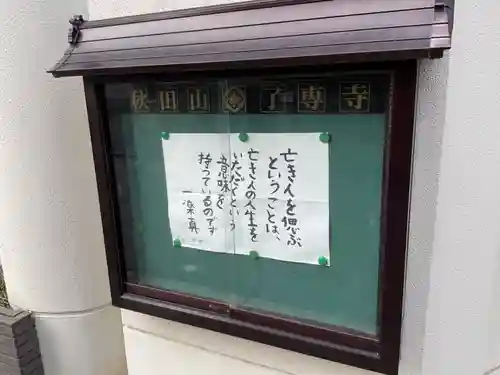 秋田山 了専寺
亡き人を偲ぶ
ということは
亡き人の人生を
いただくという
意味を
持っているのです
一楽真